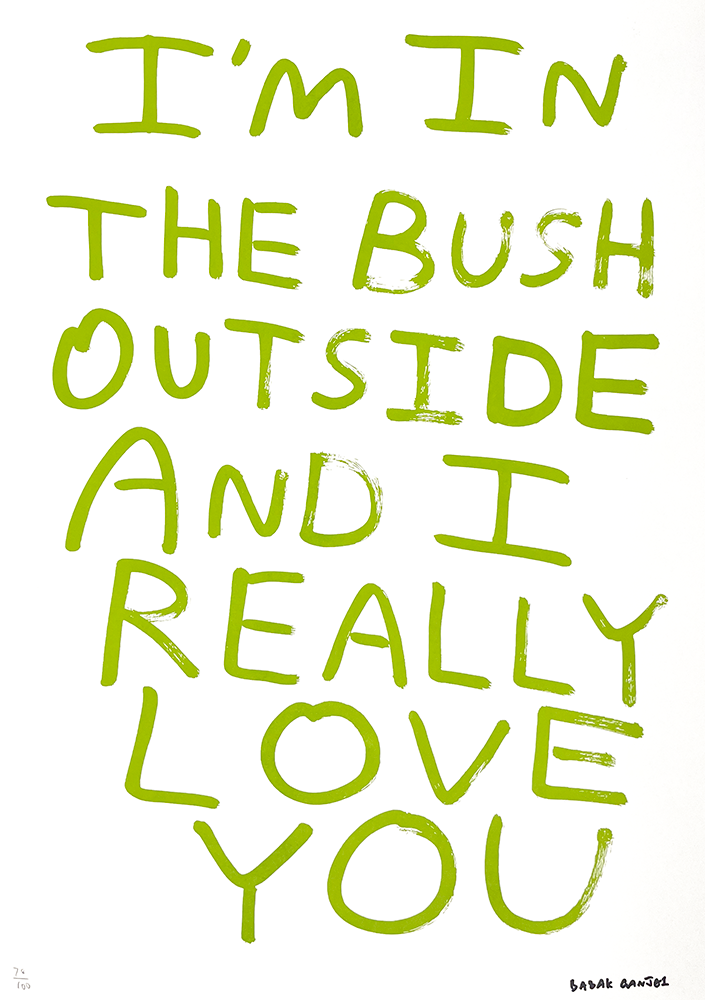 I'M IN
THE BUSH
OUTSIDE
AND I
REALLY
LOVE
YOU
76/100
BABAK GANJEI